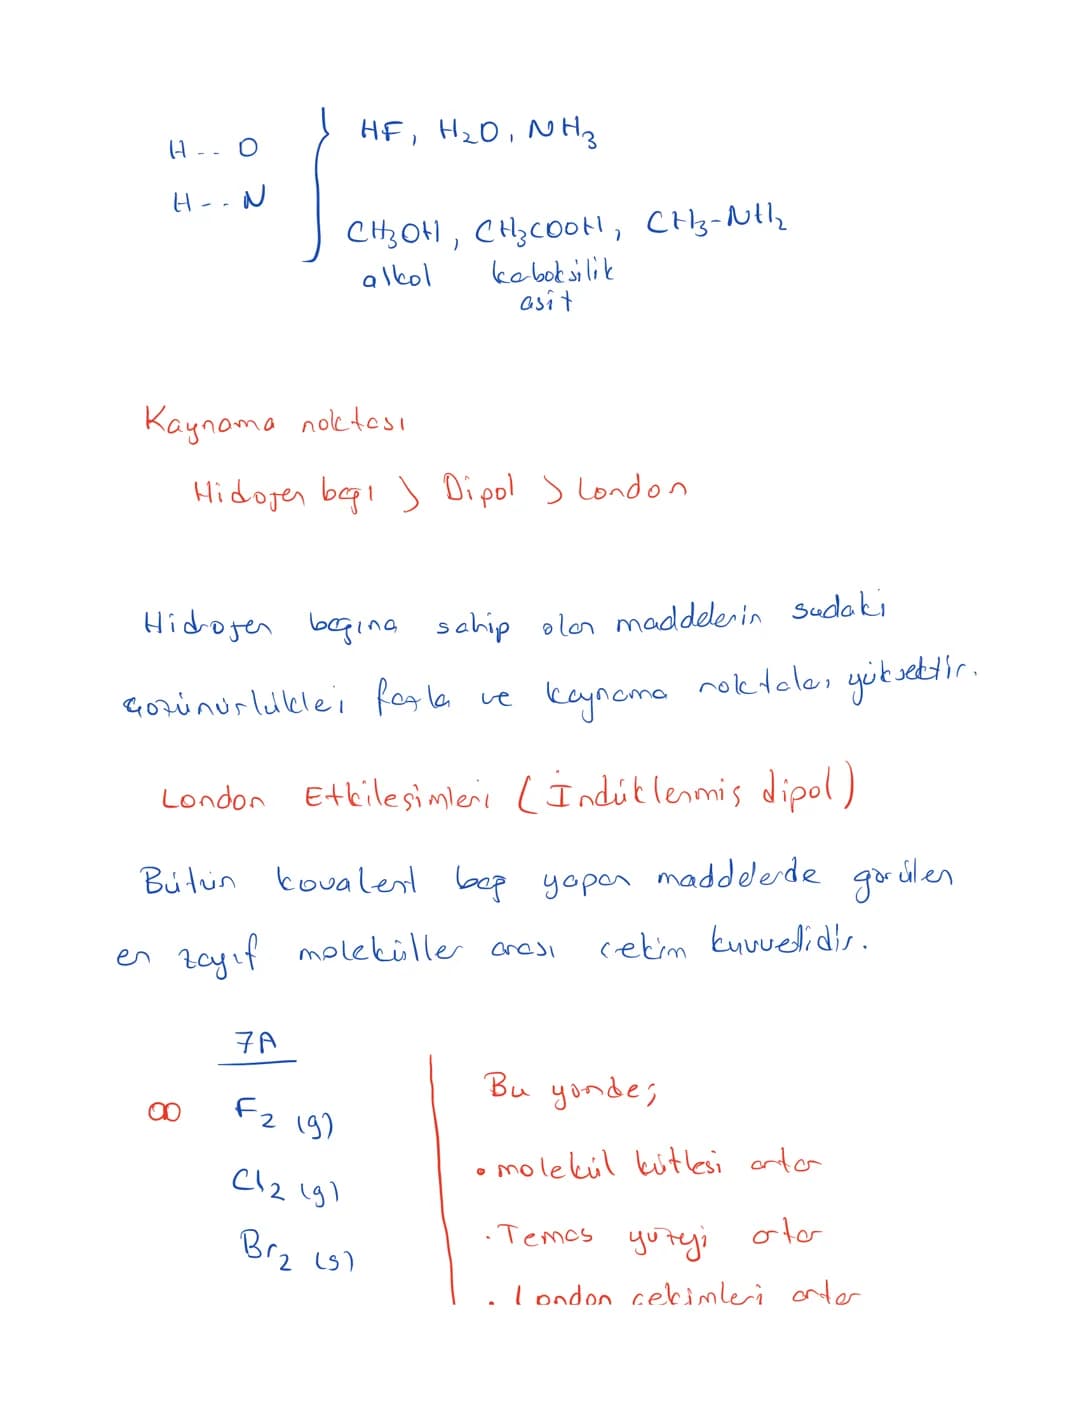 H -- O
H -- N
HF, H₂O, NH₃
CH₃OH, CH₃COOH, CH₃-NH₂
alkol kaboksilik
asit
Kaynama noktası
Hidojen bağı > Dipol > London
Hidrojen bağına sahip olan maddelerin sudaki
çözünürlüklei fazla ve kaynama noktaları yüksektir.
London Etkileşimleri (İndüklenmiş dipol)
Bütün kovalent bağ yapan maddelerde görülen
en zayıf moleküller arası çekim kuvvetidir.
7A
F₂ (g)
Cl₂ (g)
Br₂ (s)
Bu yönde;
• molekül kütlesi artar
• Temas yüzeyi artar
• London çekimleri artar